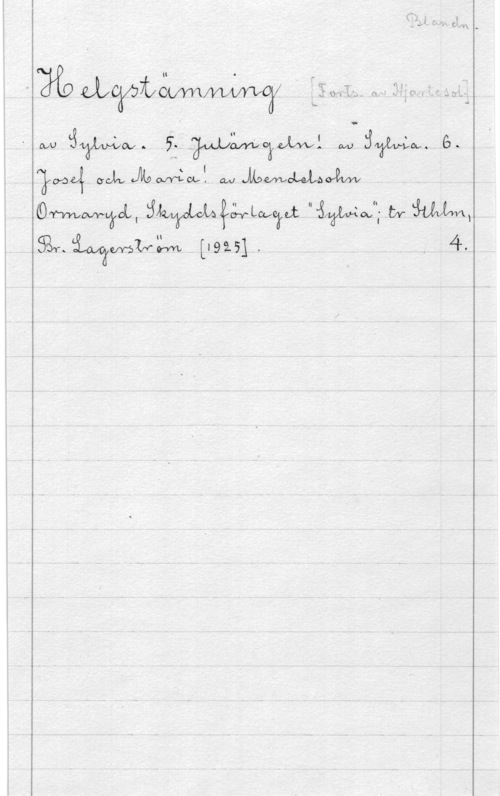 Blandn.
Helgstämning [Forts. av Hjärtesol]
av Sylvia. 5. Julängeln! av Sylvia. 6.
Josef och Maria! av Mendelsohn
Ormaryd, Skyddsförlaget "Sylvia"; tr Sthlm,
Br. Lagerström [1925]. 4.